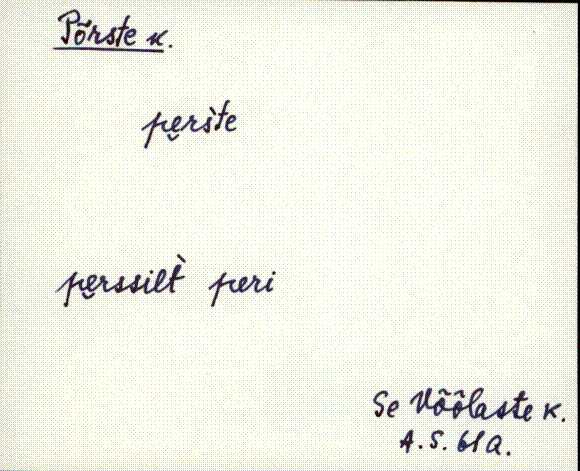 Põrste k.
pe̮rśte
pe̮rssilt̀ peri
Se Võõlaste k.
A. S. 61 a.